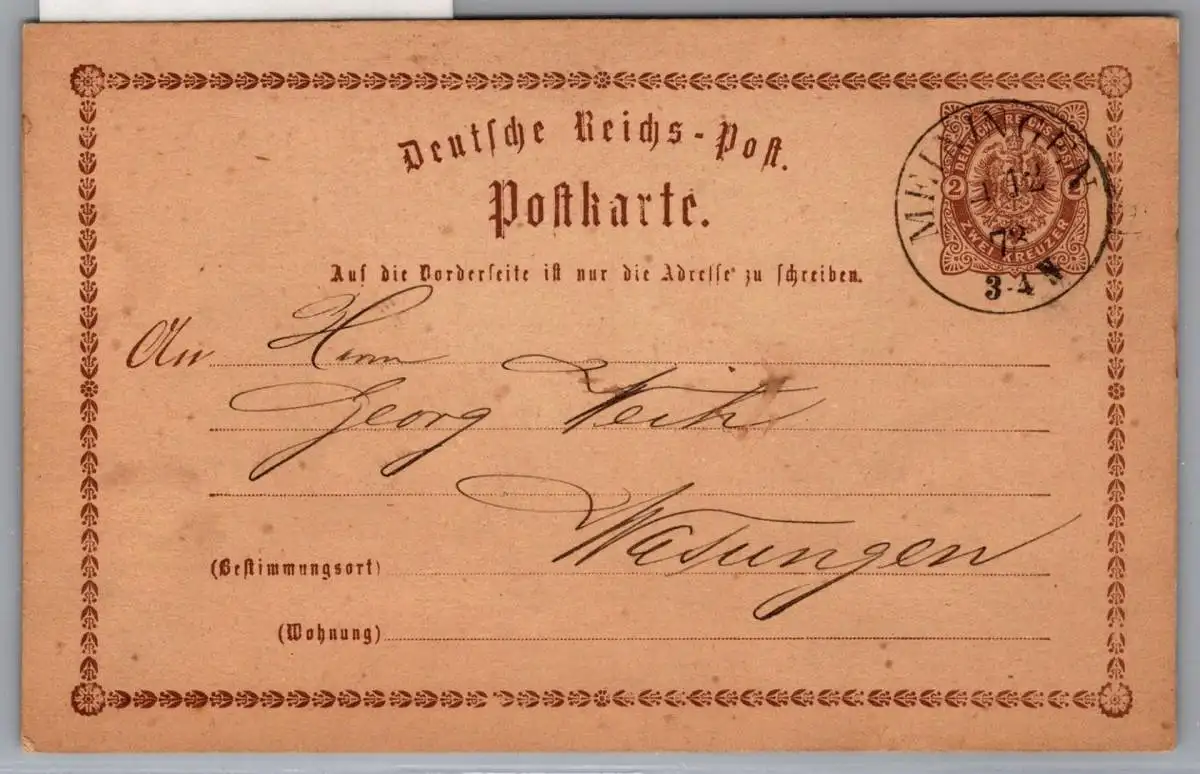 Deutsche Reichs-Post.
Postkarte.
Auf die Vorderseite ist nur die Adresse zu schreiben.
DEUTSCHE REICHS-POST
2 2
ZWEI KREUZER
MEININGEN
12
3-4 N
An Herrn
Georg
Wasungen
(Bestimmungsort)
(Wohnung)